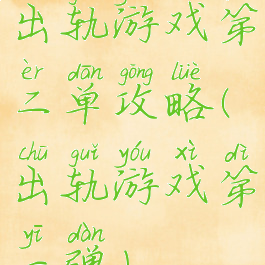 出轨游戏第
èr dān gōng lüè
二单攻略(
chū guǐ yóu xì dì
出轨游戏第
yī dàn
一弹)